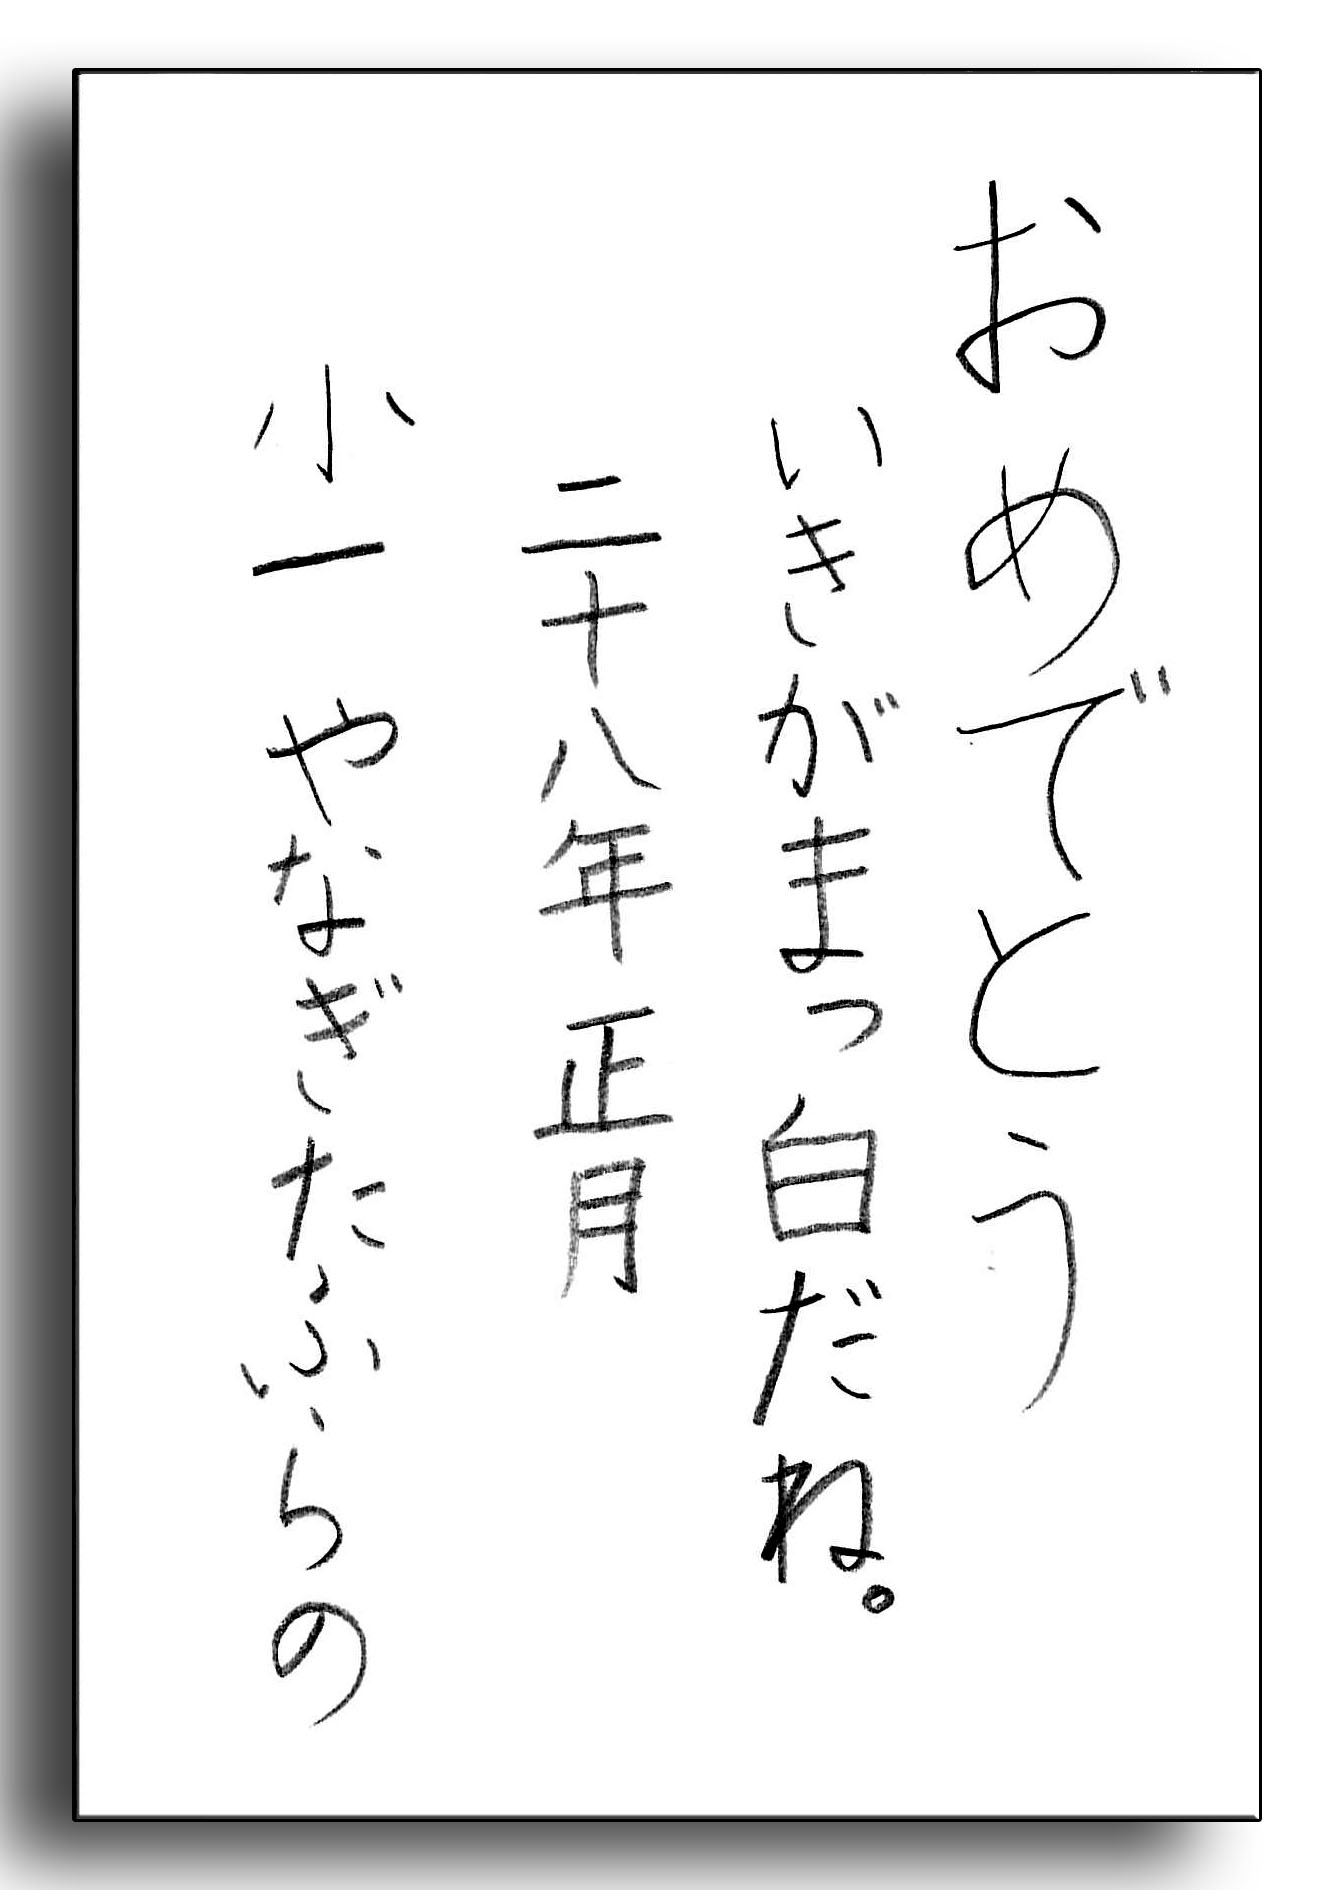 おめでとう
いきがまっ白だね。
二十八年 正月
小一 やなぎたふらの